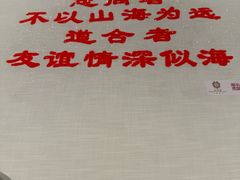 志同者
不以山海为远
道合者
友谊情深似海